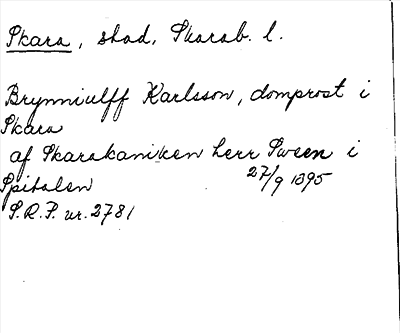 Skara, stad, Skarab. l.
Brynniulff Karlsson, domprost i
Skara
af Skarakaniken herr Sween i
Spitalen 27/9 1395
S.R.P. nr. 2781